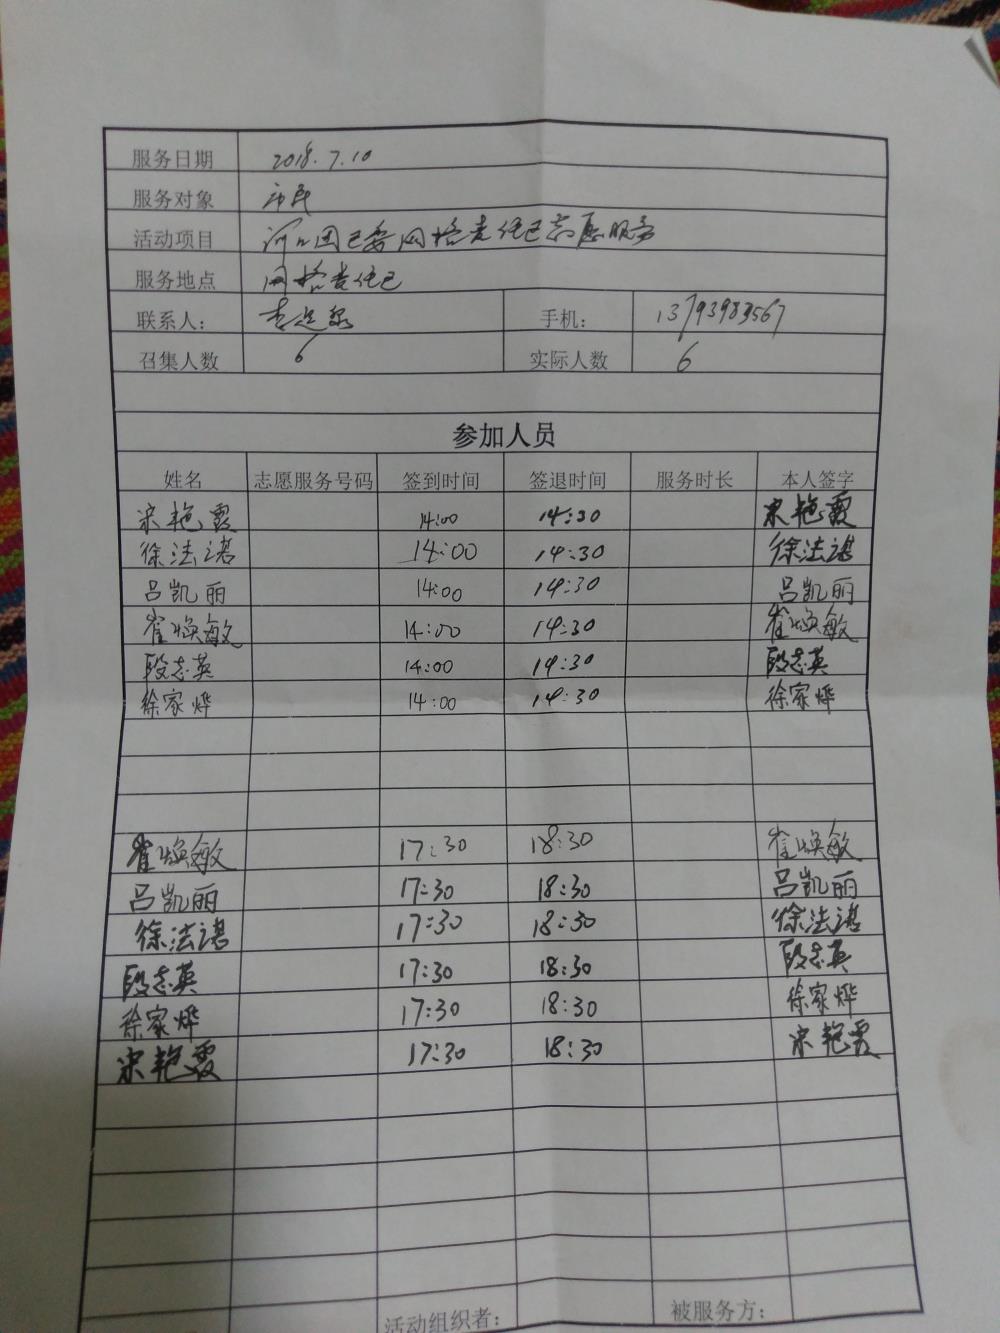 服务日期 2018.7.10
服务对象 市民
活动项目 河口团区委网格责任区志愿服务
服务地点 网格责任区
联系人： 手机： 13793983567
召集人数 6 实际人数 6
参加人员
姓名 志愿服务号码 签到时间 签退时间 服务时长 本人签字
宋艳霞 14:00 14:30 宋艳霞
徐法谌 14:00 14:30 徐法谌
吕凯丽 14:00 14:30 吕凯丽
崔焕敏 14:00 14:30 崔焕敏
段志英 14:00 14:30 段志英
徐家烨 14:00 14:30 徐家烨
崔焕敏 17:30 18:30 崔焕敏
吕凯丽 17:30 18:30 吕凯丽
徐法谌 17:30 18:30 徐法谌
段志英 17:30 18:30 段志英
徐家烨 17:30 18:30 徐家烨
宋艳霞 17:30 18:30 宋艳霞
活动组织者： 被服务方：